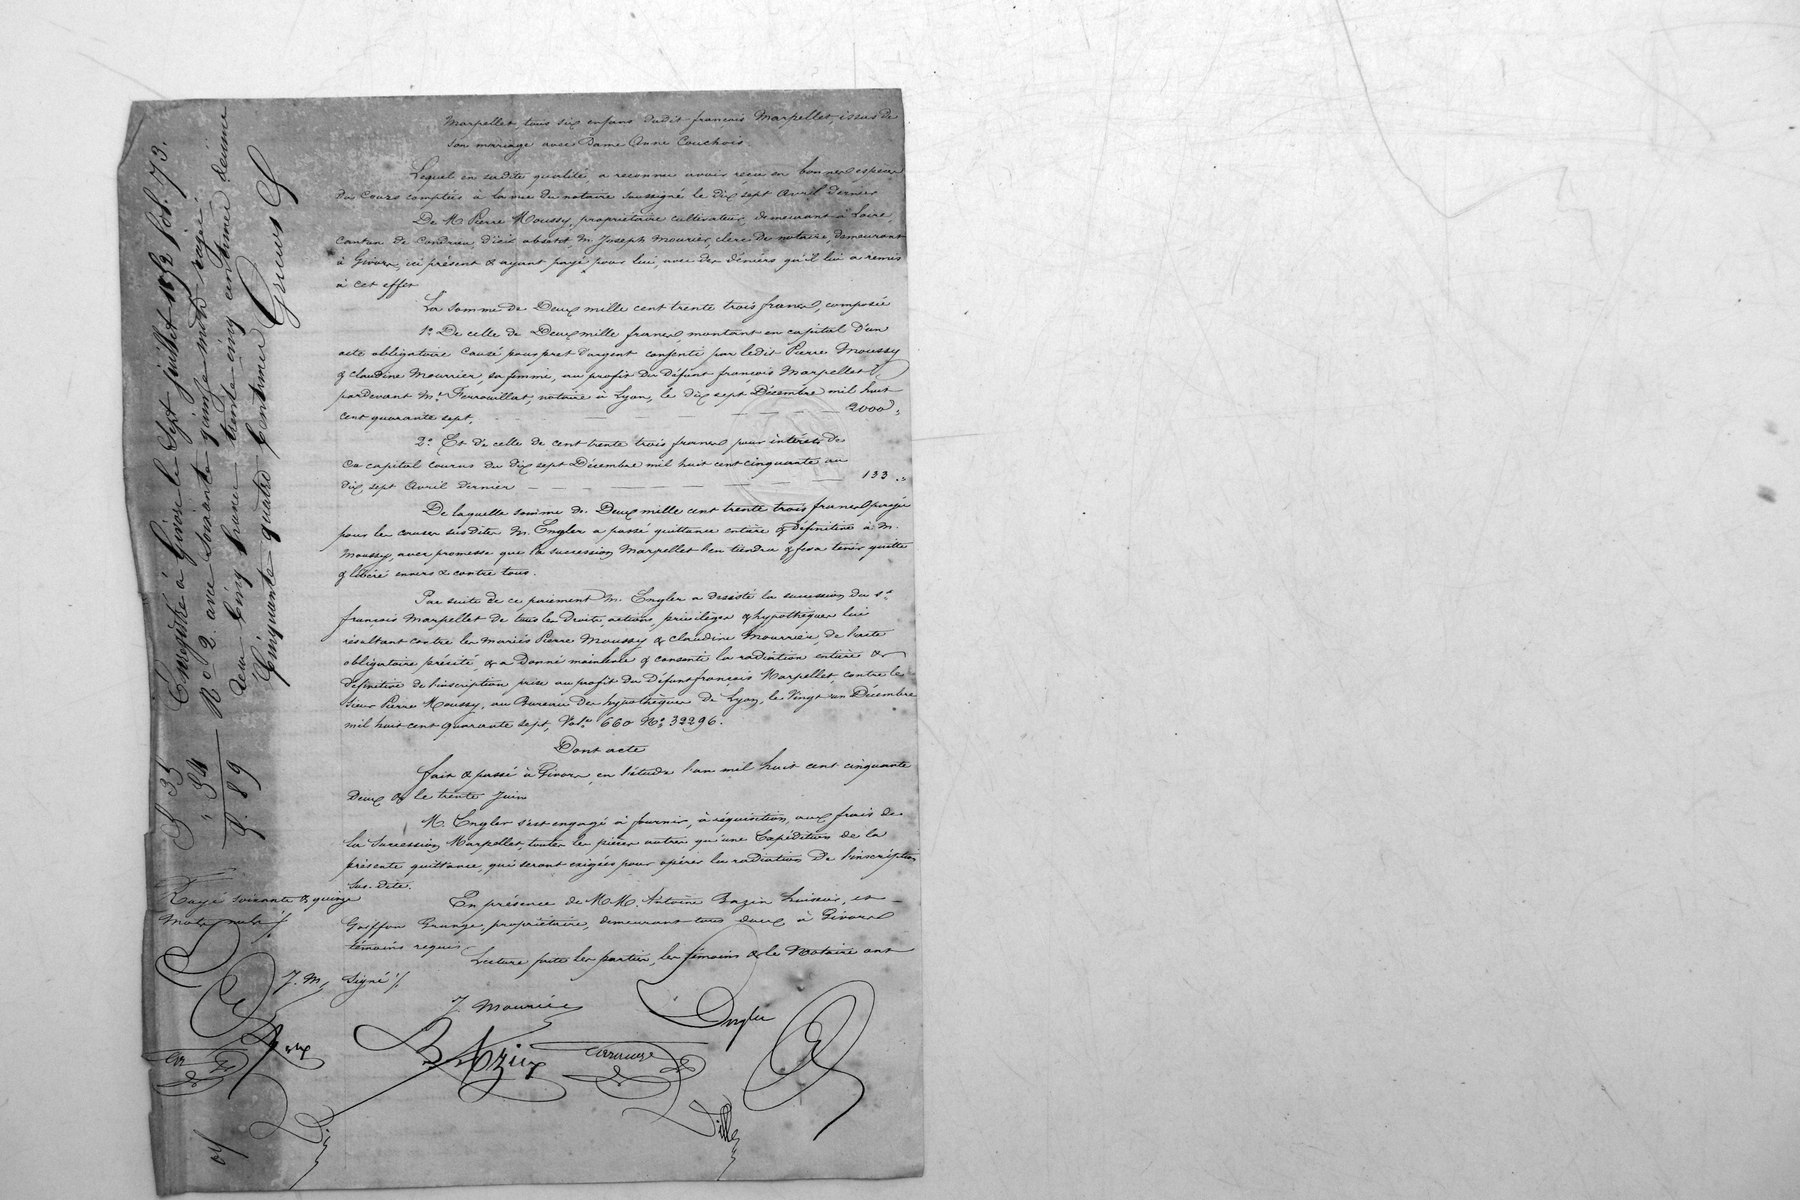 Marpellet, tous six enfans dudit françois Marpellet issus de
son mariage avec Dame Anne Couchois.
Lequel en sadite qualité a reconnu avoir reçu en bonnes espèces
du cours comptées à la vue du notaire soussigné le dix sept Avril dernier
De M. Pierre Moussy, propriétaire cultivateur, demeurant à Loire
canton de Condrieu d'ici absent, M. Joseph Mourier, clerc de notaire, demeurant
à Givors, ici présent & ayant payé pour lui, avec des déniers qu'il lui a remis
à cet effet
La somme de Deux mille cent trente trois francs, composée
1º De celle de Deux mille francs, montant en capital d'un
acte obligatoire causé pour pret d'argent consenti par ledit Pierre Moussy
& claudine Mourrier, sa femme, au profit du défunt françois Marpellet
pardevant Me Ferrouillat, notaire à Lyon, le dix sept Décembre mil huit
cent quarante sept, 2000 "
2º Et de celle de cent trente trois francs pour intérêts de
ce capital courus du dix sept Décembre mil huit cent cinquante au
dix sept Avril dernier 133 . "
De laquelle somme de Deux mille cent trente trois francs payée
pour les causes susdites M. Engler a passé quittance entière & définitive à M.
Moussy, avec promesse que la succession Marpellet l'en tiendra & fera tenir quitte
& libéré envers & contre tous.
Par suite de ce paiement M. Engler a désisté la succession du sr
françois Marpellet de tous les droits, actions, privilèges & hypothèques lui
résultant contre les mariés Pierre Moussy & claudine Mourrier, de l'acte
obligatoire précité, & a donné mainlevée & consenti la radiation entière &
définitive de l'inscription prise au profit du Défunt françois Marpellet, contre le
sieur Pierre Moussy, au Bureau des hypothèques de Lyon, le Vingt un Décembre
mil huit cent quarante sept, Vol. 660 No. 32296.
Dont acte
fait & passé à Givors, en l'étude l'an mil huit cent cinquante
deux & le trente Juin
M. Engler s'est engagé à fournir, à réquisition, aux frais de
la succession Marpellet, toutes les pièces autres qu'une Expédition de la
présente quittance, qui seront exigées pour opérer la radiation de l'inscription
sus-dite.
En présence de MM. Antoine Bazin huissier, et
Grange, propriétaire, demeurant tous deux à Givors
témoins requis
Lecture faite les parties, les témoins & le Notaire ont
signé ./.
J. Mourier
Engler
Bazin
J. M,
Rayé soixante & quinze
mots nuls ./.
Enregistré à Givors le sept juillet 1852 fol. 73.
Ro. 2. avec soixante quinze mots rayés.
reçu cinq francs trente cinq centimes decime
cinquante quatre centimes
5 35
" 54
5. 89